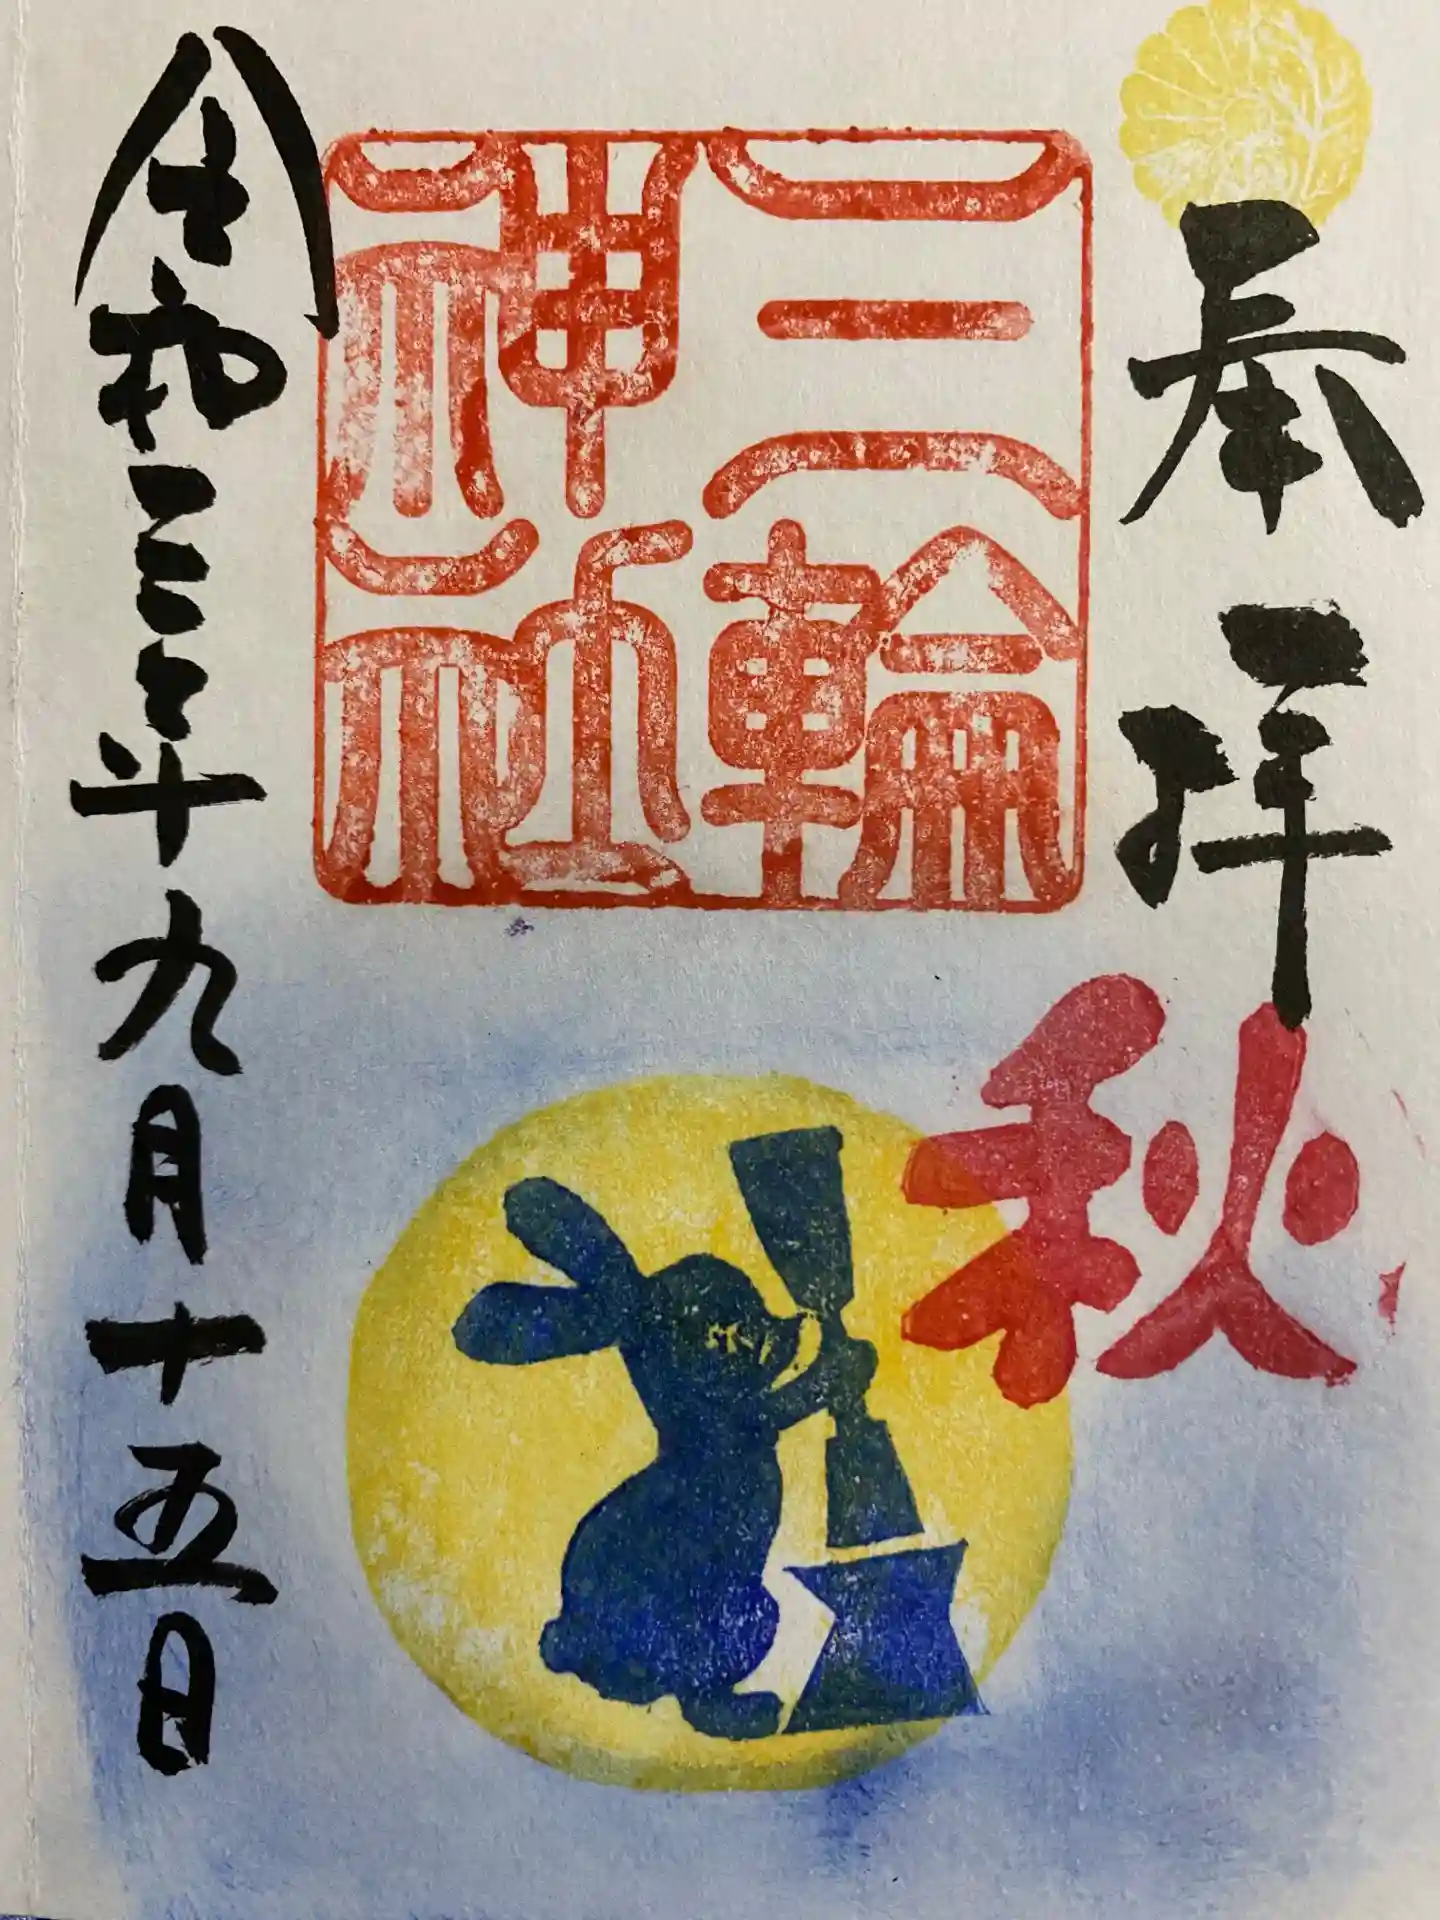 奉拝
秋
三輪
神社
令和三年九月十五日